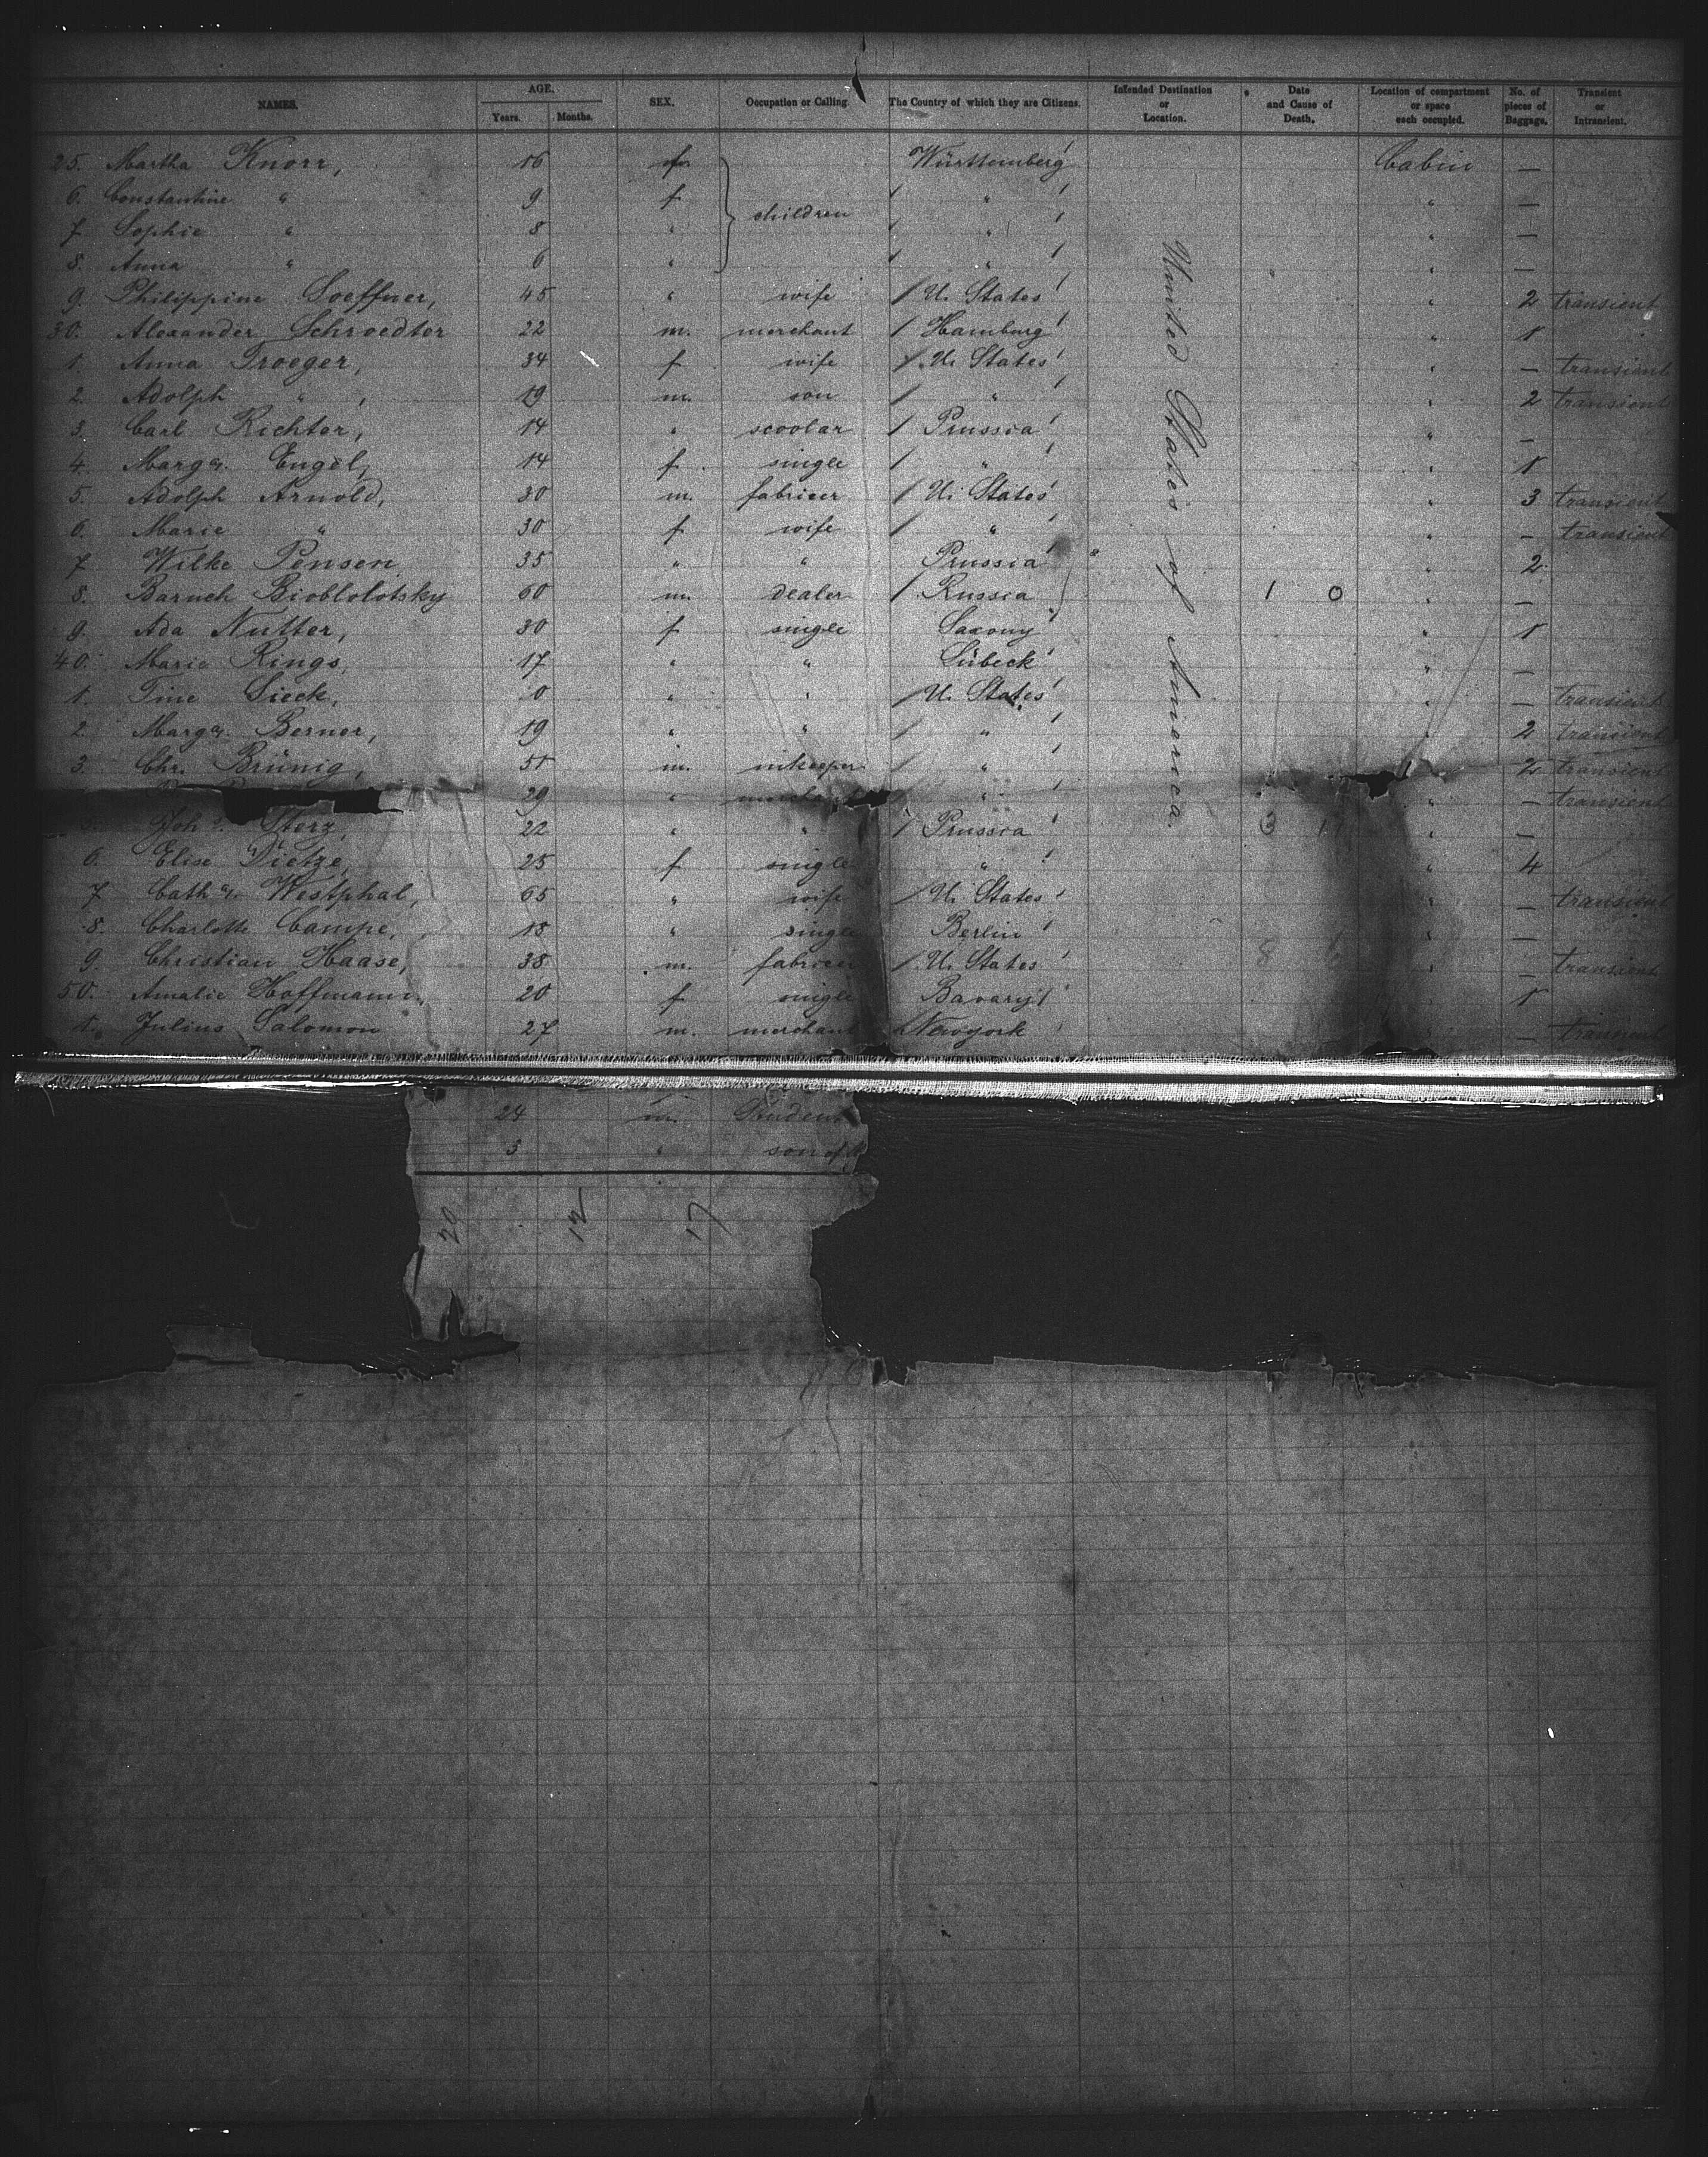 NAMES. AGE. Years. Months. SEX. Occupation or Calling. The Country of which they are Citizens. Intended Destination or Location. Date and Cause of Death. Location of compartment or space each occupied. No. of pieces of Baggage. Transient or Intransient.
25. Martha Knorr, 16 f. Württemberg Cabin —
6. Constantine " 9 f " " —
children
7. Sophie " 8 " " " —
8. Anna " 6 " " " —
9. Philippine Soeffner, 45 " wife U. States " 2 transient
30. Alexander Schroedter 22 m. merchant Hamburg " 1
1. Anna Troeger, 34 f wife U. States " — transient
2. Adolph " , 19 m. son " " 2 transient
3. Carl Richter, 14 " scoolar Prussia " —
4. Marg. Engel, 14 f. single " " 1
5. Adolph Arnold, 30 m. fabricer U. States " 3 transient
6. Marie " 30 f wife " " — transient
7. Wilke Pensen 35 " " Prussia " 2.
8. Baruch Bioblolotsky 60 m. dealer Russia 1 0 " —
9. Ada Nutter, 30 f single Saxony " 1
40. Marie Rings, 17 " " Lübeck " —
1. Tine Sieck, 0 " " U. States " — transient
2. Marg. Berner, 19 " " " " 2 transient
3. Chr. Brünig, 51 m. inkeeper " " 2 transient
29 " merchant " " — transient
Joh. Sterz, 22 " " Prussia 3 11 " —
6. Elise Dietze, 25 f single " " 4
7. Cath. Westphal, 65 " wife U. States " — transient
8. Charlotte Campe, 18 " single Berlin " —
9. Christian Haase, 38 m. fabricer U. States 8 " — transient
50. Amalie Hoffmann, 20 f single Bavary 1
1. Julius Salomon 27 m. merchant Newyork — transient
United States of America.
24 m. Student
3 " son of
20 12 17